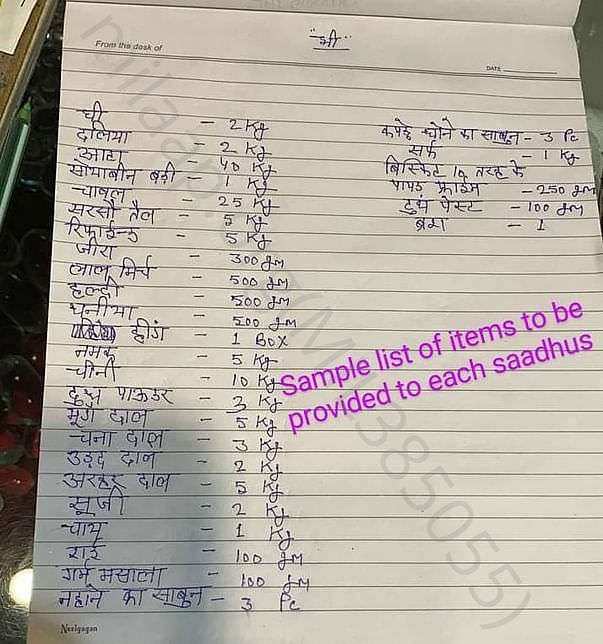 "श्री"
From the desk of
DATE
घी - 2 Kg
दलिया - 2 Kg
आटा - 40 Kg
सोयाबीन बड़ी - 1 Kg
चावल - 25 Kg
सरसों तैल - 5 Kg
रिफाईन्ड - 5 Kg
जीरा - 300 gm
लाल मिर्च - 500 gm
हल्दी - 500 gm
धनीया - 500 gm
हींग - 1 BOX
नमक - 5 Kg
चीनी - 10 Kg
दुध पाऊडर - 3 Kg
मूंग दाल - 5 Kg
चना दाल - 3 Kg
उड़द दाल - 2 Kg
अरहर दाल - 5 Kg
सूजी - 2 Kg
चाय - 1 Kg
राई - 100 gm
गर्म मसाला - 100 gm
नहाने का साबुन - 3 Pc
कपड़े धोने का साबुन - 3 Pc
सर्फ - 1 Kg
बिस्किट 10 तरह के
- 250 gm
पेस्ट - 100 gm
ब्रश - 1
Sample list of items to be
provided to each saadhus
Neelgagan